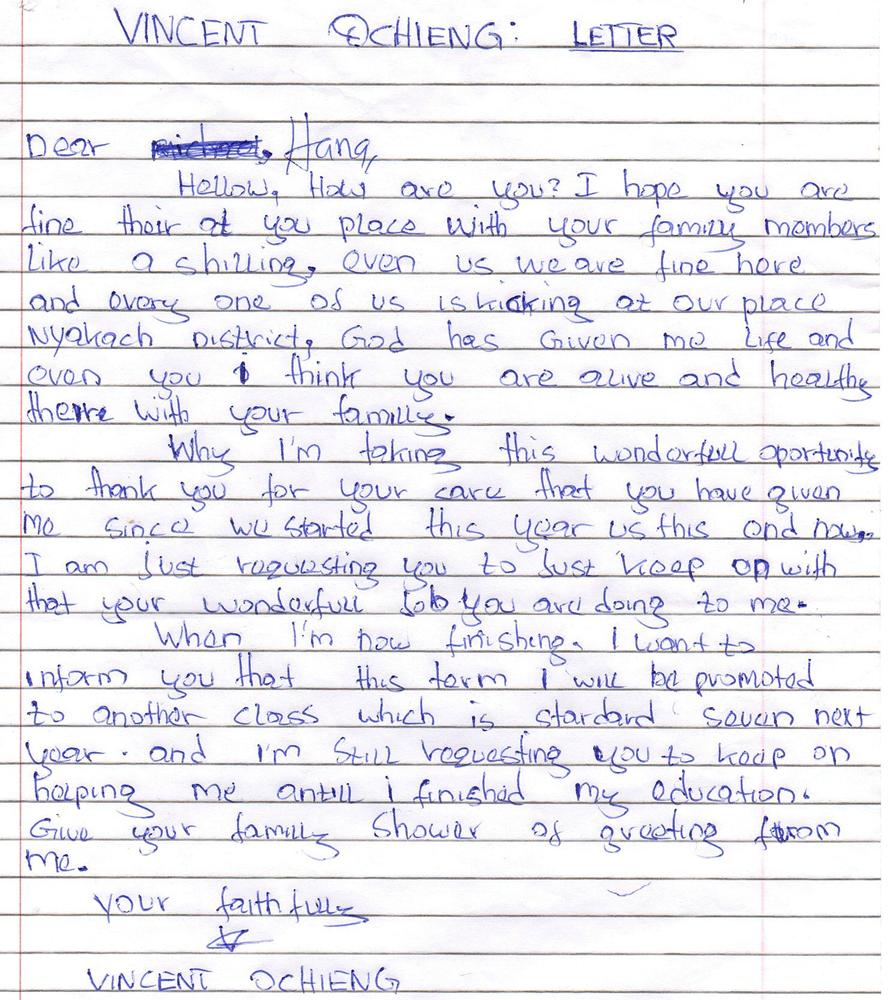 VINCENT OCHIENG: LETTER
Dear Hang,
Hellow, How are you? I hope you are
fine their at you place with your family members
like a shilling, even us we are fine here
and every one of us is kicking at our place
Nyakach District, God has Given me life and
even you i think you are alive and healthy
there with your familly.
Why I'm taking this wonderfull oportunity
to thank you for your care that you have given
me since we started this year us this and now.
I am just requesting you to just keep on with
that your wonderfull job you are doing to me.
When I'm now finisheng. I want to
inform you that this term I will be promoted
to another class which is stardard seven next
year. and I'm still requesting you to keep on
helping me antill i finished my education.
Give your family shower of greeting from
me.
your faithfully
VINCENT OCHIENG